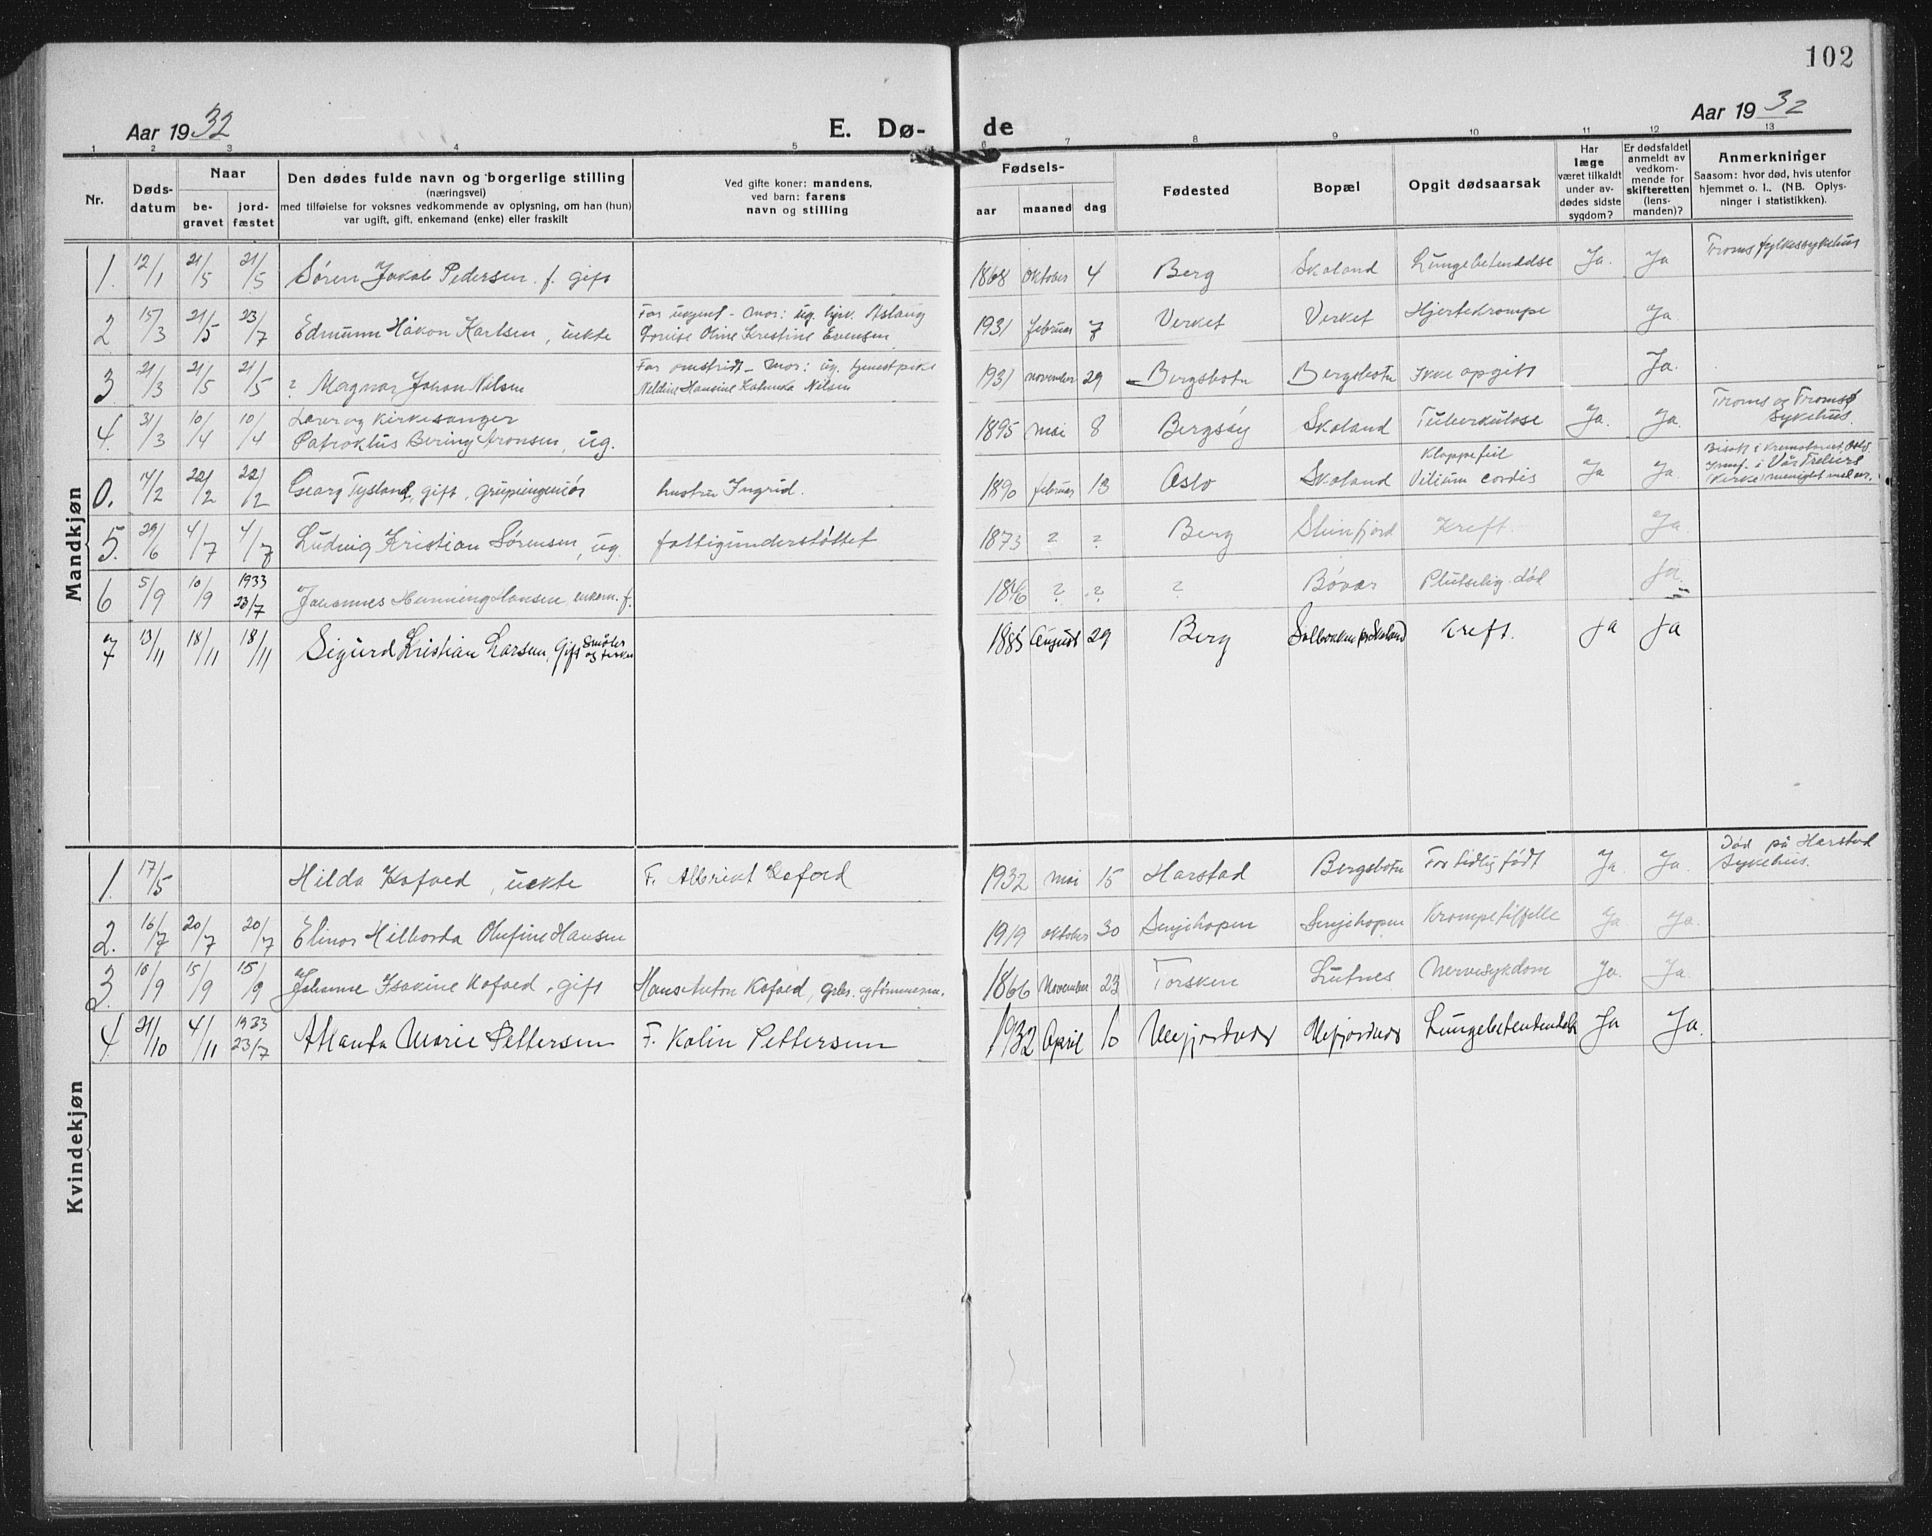 102
Aar 1932 E. Dø- de Aar 1932
1 2 3 4 5 6 7 8 9 10 11 12 13
Nr. Døds-datum Naar be-gravet jord-fæstet Den dødes fulde navn og borgerlige stilling (næringsvei) med tilføielse for voksnes vedkommende av oplysning, om han (hun) var ugift, gift, enkemand (enke) eller fraskilt Ved gifte koner: mandens, ved barn: farens navn og stilling Fødsels- aar maaned dag Fødested Bopæl Opgit dødsaarsak Har læge været tilkaldt under av-dødes sidste sygdom? Er dødsfaldet anmeldt av vedkom-mende for skifteretten (lens-manden)? Anmerkninger Saasom: hvor død, hvis utenfor hjemmet o. l.. (NB. Oplys-ninger i statistikken).
Mandkjøn
1. 12/1 21/5 21/5 Søren Jakob Pedersen f. gift 1868 Oktober 4 Berg Skaland Lungebetendelse Ja. Ja Troms fylkessykehus
2 15/3 21/5 23/7 Edmunn Håkon Karlsen, uekte Far ukjent - Mor: ug. Aslaug Louise Oline Kristine Evensen 1931 februar 7 Verket Verket Hjertekrampe Ja.
3 21/3 21/5 21/5 ? Magnar Johan Nilsen Far omstridt - Mor: ug. tjenestpike Hansine Nilsen 1931 november 29 Bergsbotn Bergsbotn Ikke opgitt Ja.
4. 31/3 10/4 10/4 Lærer og kirkesanger
Patroklus Bering Aronsen, ug. 1895 mai 8 Bergsøy Skaland Tuberkulose Ja. Ja. Troms og Tromsø Sykehus.
0. 14/2 22/2 22/2 Georg Tysland, gift, grupeingeniør hustru Ingrid. 1890 februar 13 Oslo Skaland Klappefeil Vitium cordis Ja Ja. Bisatt i Krematoriet, Oslo. i Vår Frelsers Kirke
5. 29/6 4/7 4/7 Ludvig Kristian Sørensen, ug. fattigunderstøttet 1873 ? ? Berg Steinfjord Kreft. Ja.
6 5/9 10/9 1933 23/7 Johannes Henning Hansen, enkem. f. 1846 ? ? ? Bøvær Plutselig død Ja.
7 13/11 18/11 18/11 Sigurd Kristian Larsen, Gift 1885 August 29 Berg Solbakken pr Skaland Kreft. Ja Ja
Kvindekjøn
1. 17/5 Hilda Kofoed, uekte F. Albrikt Kofoed 1932 mai 15 Harstad Bergsbotn For tidlig født Ja. Ja. Død på Harstad Sykehus.
2. 16/7 20/7 20/7 Elinor Hilborda Olufine Hansen 1919 oktober 30 Senjehopen Senjehopen Krampetilfelle Ja. Ja.
3 10/9 15/9 15/9 Johanne Isakine Kofoed, gift Hans Anton Kofoed, 1866 November 23 Torsken Lutnes Nervesykdom Ja. Ja.
4 21/10 4/11 1933 23/7 Marie Pettersen F. Kolin Pettersen 1932 April 10 Mefjordvær Mefjordvær Lungebetendelse Ja Ja.